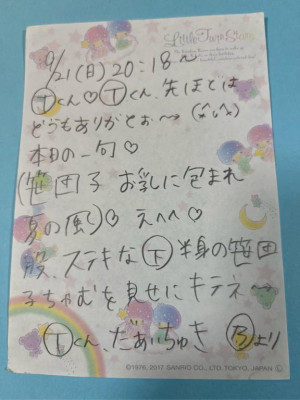 Little Twin Stars
9/21(日)20:18〜
Ⓣくん♡Ⓣくん、先ほどは
どうもありがとお〜(^ ^)
本日の一句♡
(笹団子 お乳に包まれ
夏の風)♡ えへへ♡
殿、ステキな㊦半身の笹団
子ちゃむを見せにキテネ〜
Ⓣくん、だぁいちゅき 乃より
©1976, 2017 SANRIO CO., LTD. TOKYO, JAPAN